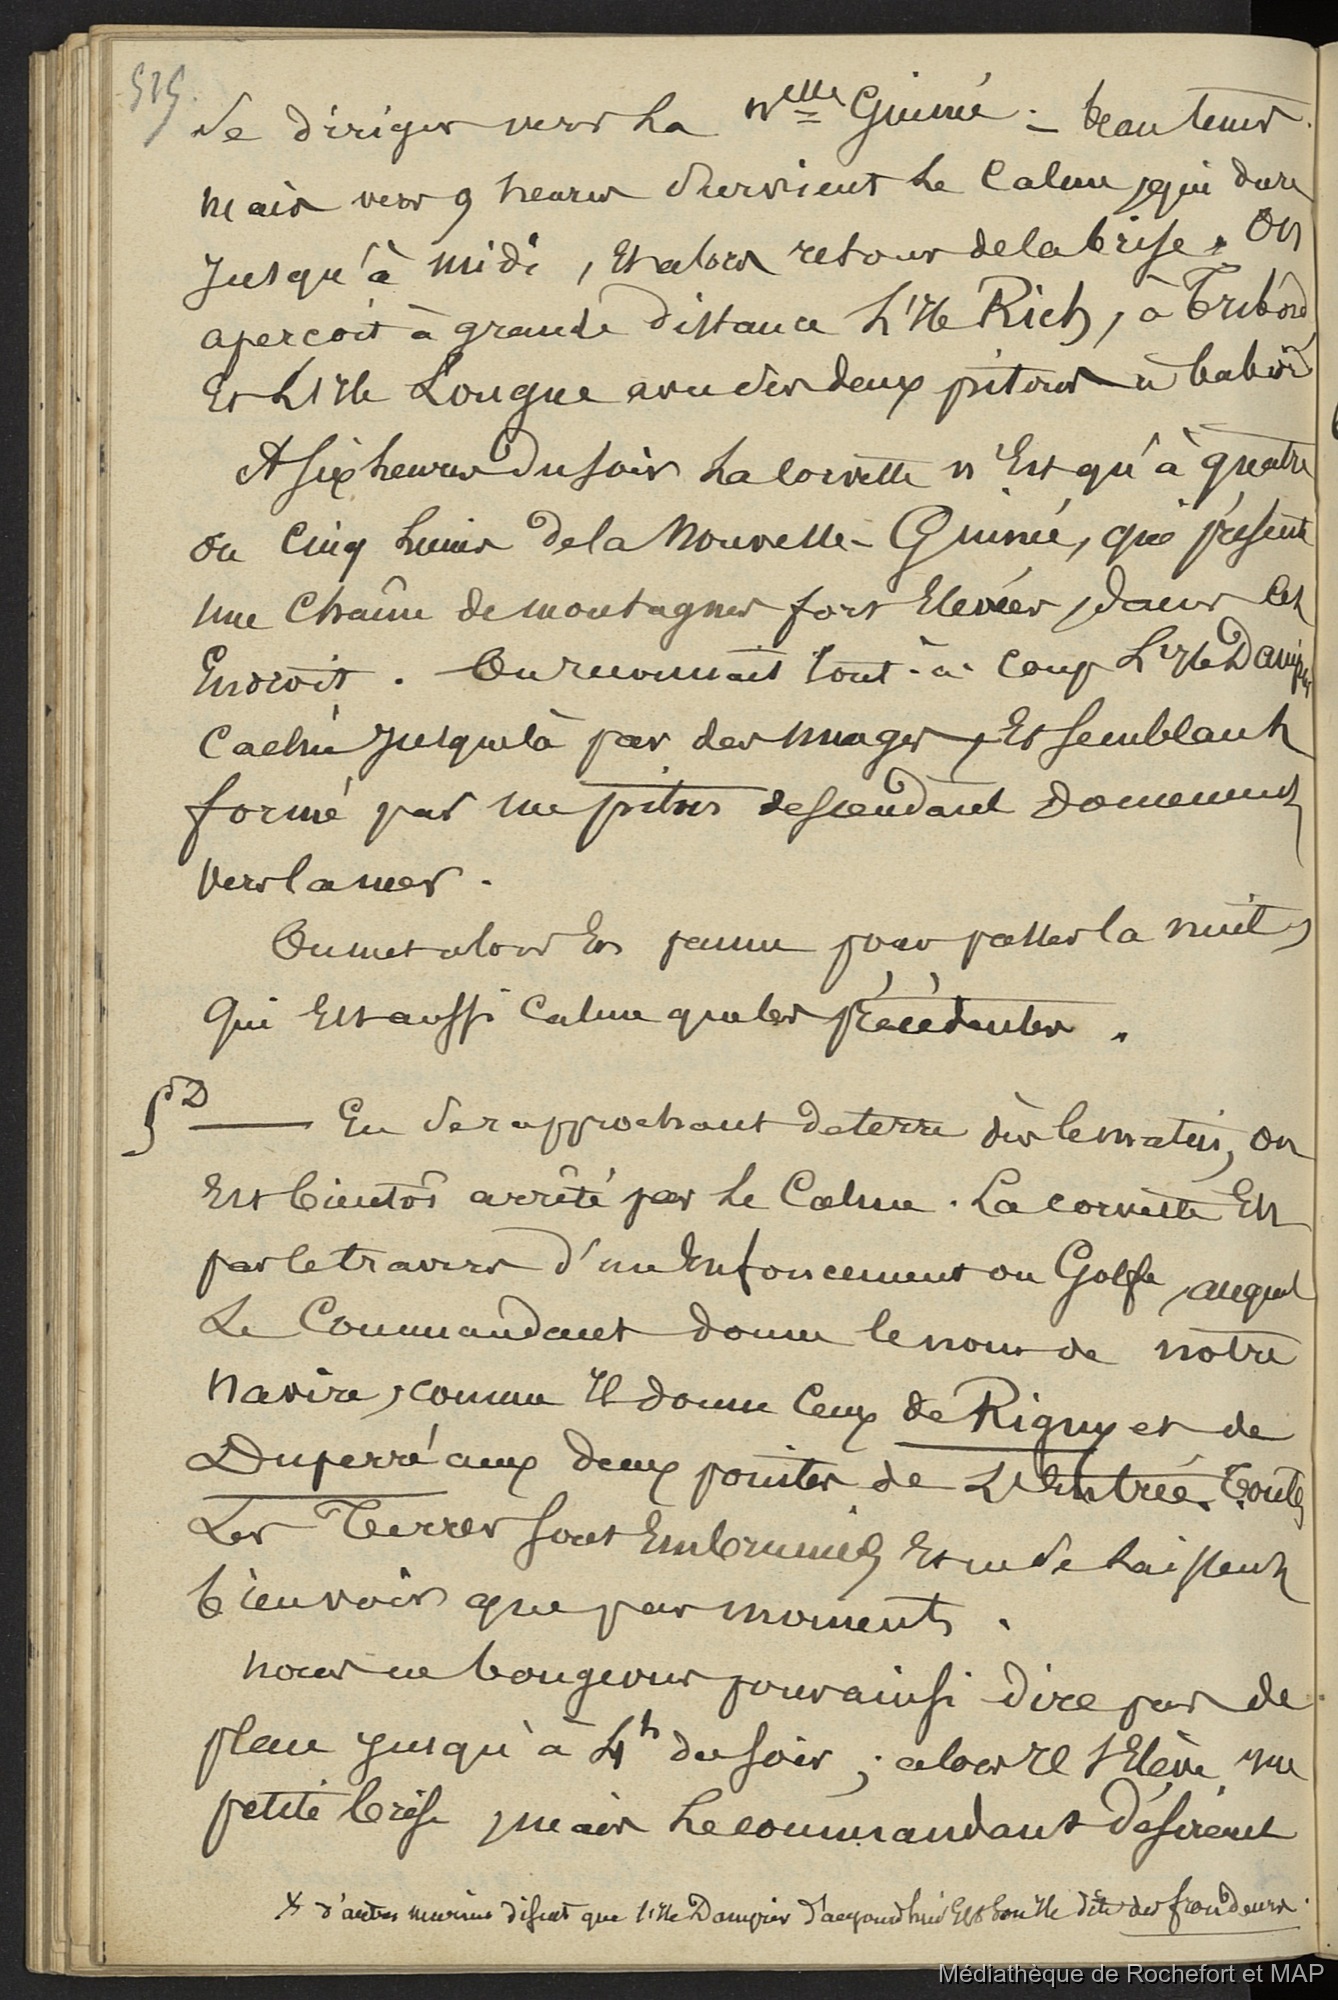 515.
se diriger vers la Nelle Guinée. – Beau temps.
mais vers 9 heures survient le calme, qui dure
jusqu'à midi, et alors retour de la brise. On
aperçoit à grande distance l'Ile Rich, à Tribord
et l'Ile Longue avec ses deux pitons à babord
A six heures du soir la corvette n'est qu'à quatre
ou cinq lieues de la Nouvelle-Guinée, qui présente
une chaîne de montagnes fort élevées, dans cet
endroit. On reconnait tout-à-coup l'Ile Dampier
caché jusque là par des nuages, et semblant
formé par un piton descendant doucement
vers la mer.
On met alors en panne pour passer la nuit,
qui est aussi calme que les précédentes.
§ D — En se rapprochant de terre dès le matin, on
est bientôt arrêté par le calme. La corvette est
par le travers d'un enfoncement ou Golfe, auquel
le Commandant donne le nom de notre
navire, comme il donne ceux de Rigny et de
Duperré aux deux pointes de l'entrée. Toutes
les Terres sont embrumées et ne se laissent
bien voir que par moments.
nous ne bougeons pour ainsi dire pas de
place jusqu'à 4h du soir; alors il s'élève une
petite brise, mais le commandant désirant
x d'autres marins disent que l'Ile Dampier d'aujourd'hui est son Ile dite des frondeurs.
Médiathèque de Rochefort et MAP